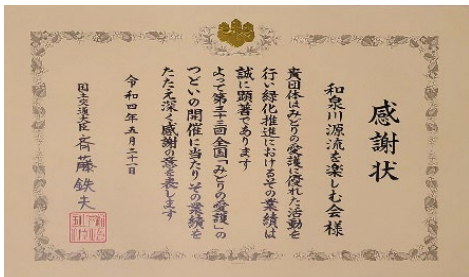 感謝状
和泉川源流を楽しむ会様
貴団体はみどりの愛護に優れた活動を
行い緑化推進におけるその業績は
誠に顕著であります
よって第三十三回全国「みどりの愛護」の
つどいの開催に当たりその業績を
たたえ深く感謝の意を表します
令和四年五月二十一日
国土交通大臣 斉藤鉄夫